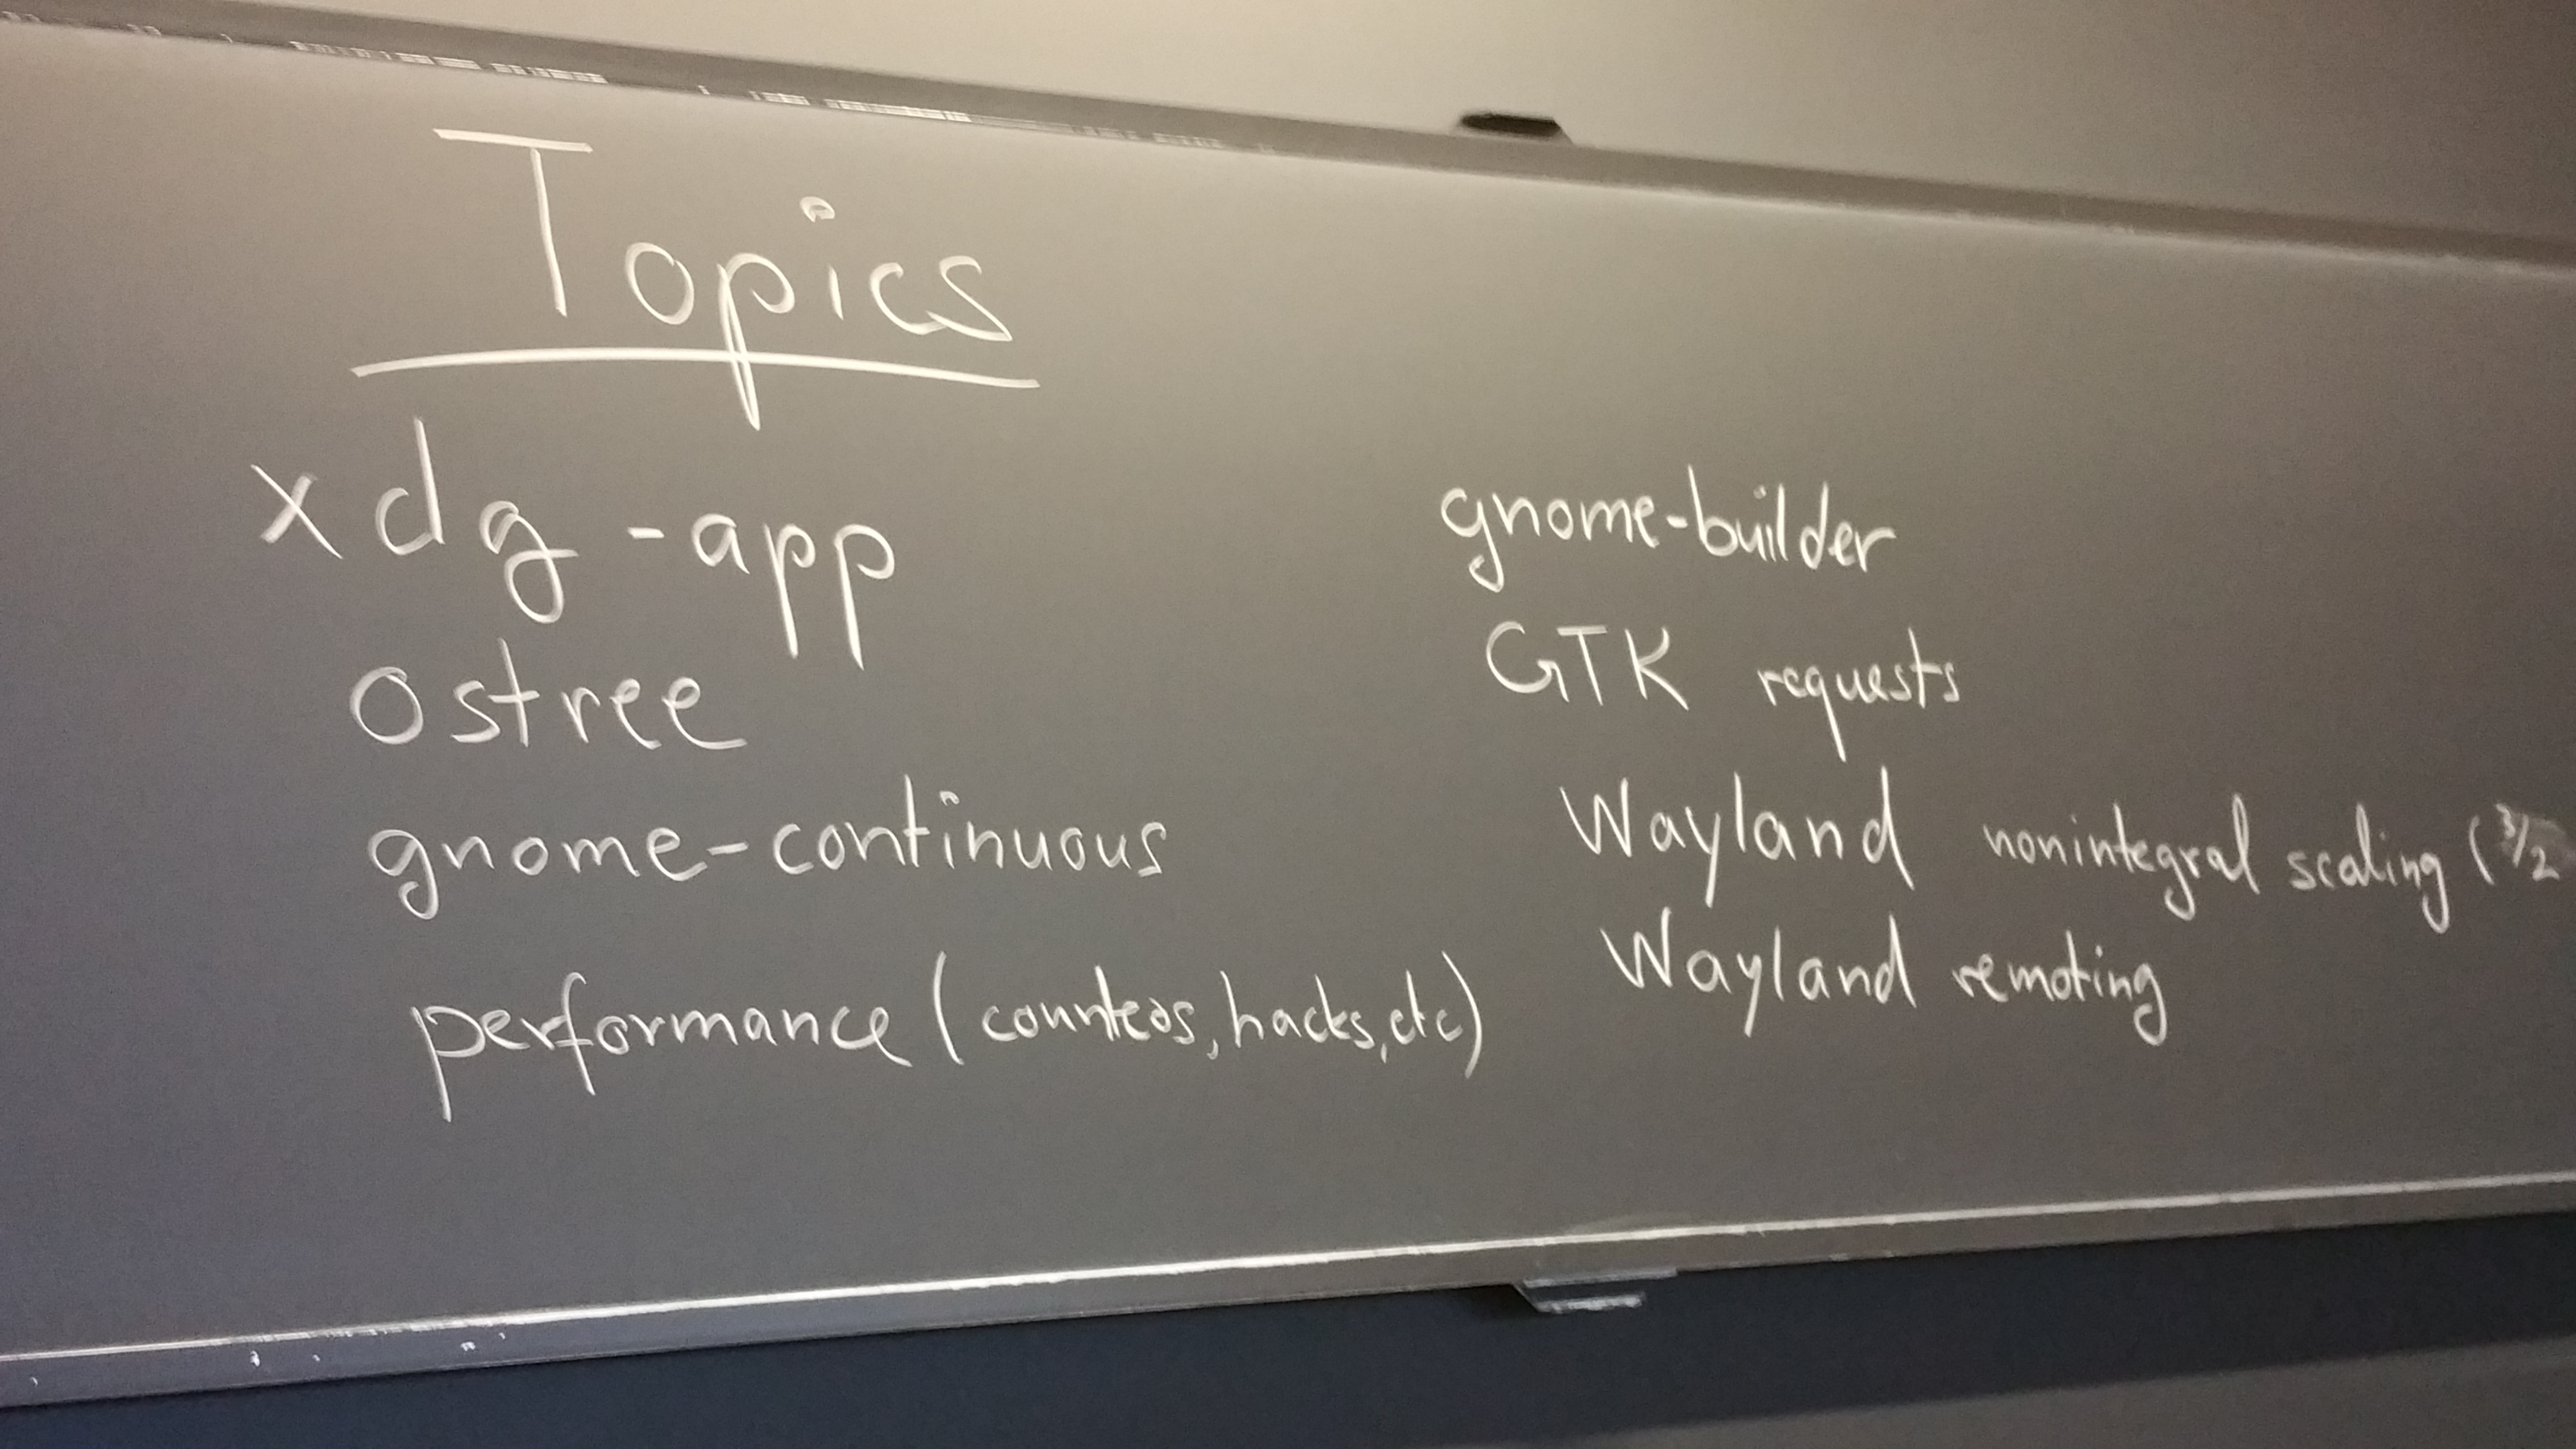 Topics
xdg-app
ostree
gnome-continuous
performance (counters, hacks, etc)
gnome-builder
GTK requests
Wayland nonintegral scaling (3/2
Wayland remoting